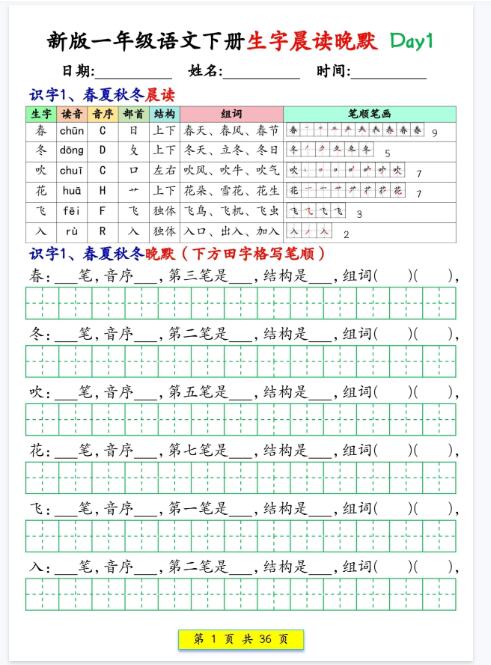 新版一年级语文下册生字晨读晚默 Day1
日期:________ 姓名:________ 时间:________
识字1、春夏秋冬晨读
生字 读音 音序 部首 结构 组词 笔顺笔画
春 chūn C 日 上下 春天、春风、春节 9
冬 dōng D 夂 上下 冬天、立冬、冬日 5
吹 chuī C 口 左右 吹风、吹牛、吹气 7
花 huā H 艹 上下 花朵、雪花、花生 7
飞 fēi F 飞 独体 飞鸟、飞机、飞虫 3
入 rù R 入 独体 入口、出入、加入 2
识字1、春夏秋冬晚默（下方田字格写笔顺）
春:___笔,音序___,第三笔是___,结构是___,组词( )( ),
冬:___笔,音序___,第二笔是___,结构是___,组词( )( ),
吹:___笔,音序___,第五笔是___,结构是___,组词( )( ),
花:___笔,音序___,第七笔是___,结构是___,组词( )( ),
飞:___笔,音序___,第一笔是___,结构是___,组词( )( ),
入:___笔,音序___,第二笔是___,结构是___,组词( )( ),
第 1 页 共 36 页